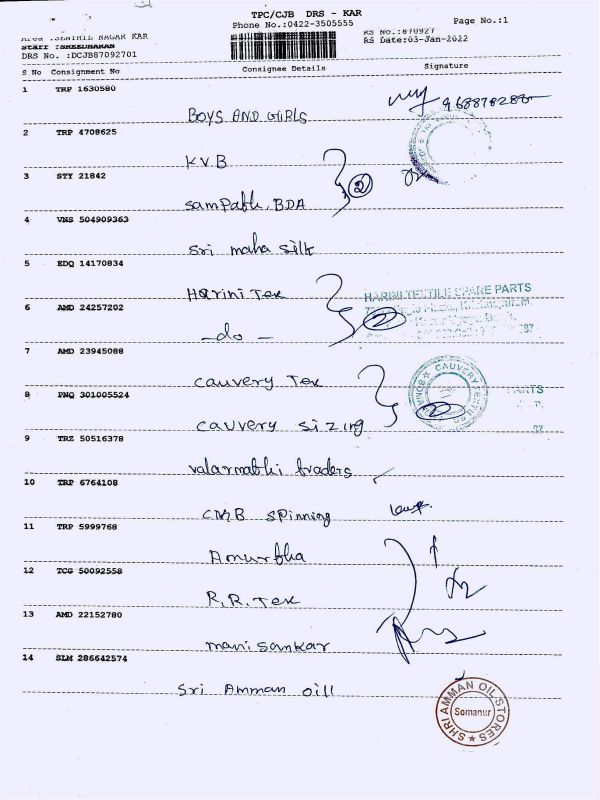 TPC/CJB DRS - KAR
Phone No.:0422-3505555
Page No.:1
Area :SENTHIL NAGAR KAR
Staff :SREEDHARAN
RS No.:870927
DRS No. :DCJB87092701
RS Date:03-Jan-2022
S No Consignment No Consignee Details Signature
1 TRP 1630580
BOYS AND GIRLS
2 TRP 4708625
KVB
3 STY 21842
2
Sampath. BDA
4 VNS 504909363
Sri maha silk
5 EDQ 14170834
Harini Tex
HARINI TEXTILE SPARE PARTS
6 AMD 24257202
2
-do-
7 AMD 23945088
Cauvery Tex
8 PNQ 301005524
CAUVERY
2
Cauvery sizing
9 TRZ 50516378
Valarmathi traders
10 TRP 6764108
CMB Spinning
11 TRP 5999768
Amurtha
12 TCG 50092558
R.R. Tex
13 AMD 22152780
manisankar
14 SLM 286642574
Sri Amman oill
SHRI AMMAN OIL STORES
Somanur